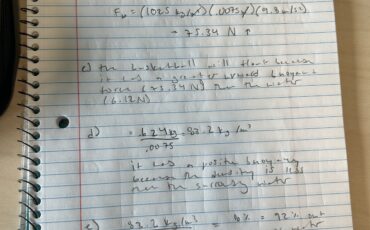 F_b = (1025 kg/m³)(.0075)(9.8 m/s²)
= 75.34 N ↑
c) the basketball will float because
it has a greater upward buoyant
force (75.34 N) than the water
(6.12 N)
d) = .624 kg = 83.2 kg/m³
.0075
it has a positive buoyancy
because the density is less
than the water
e) 83.2 kg/m³ = 8% = 92% out